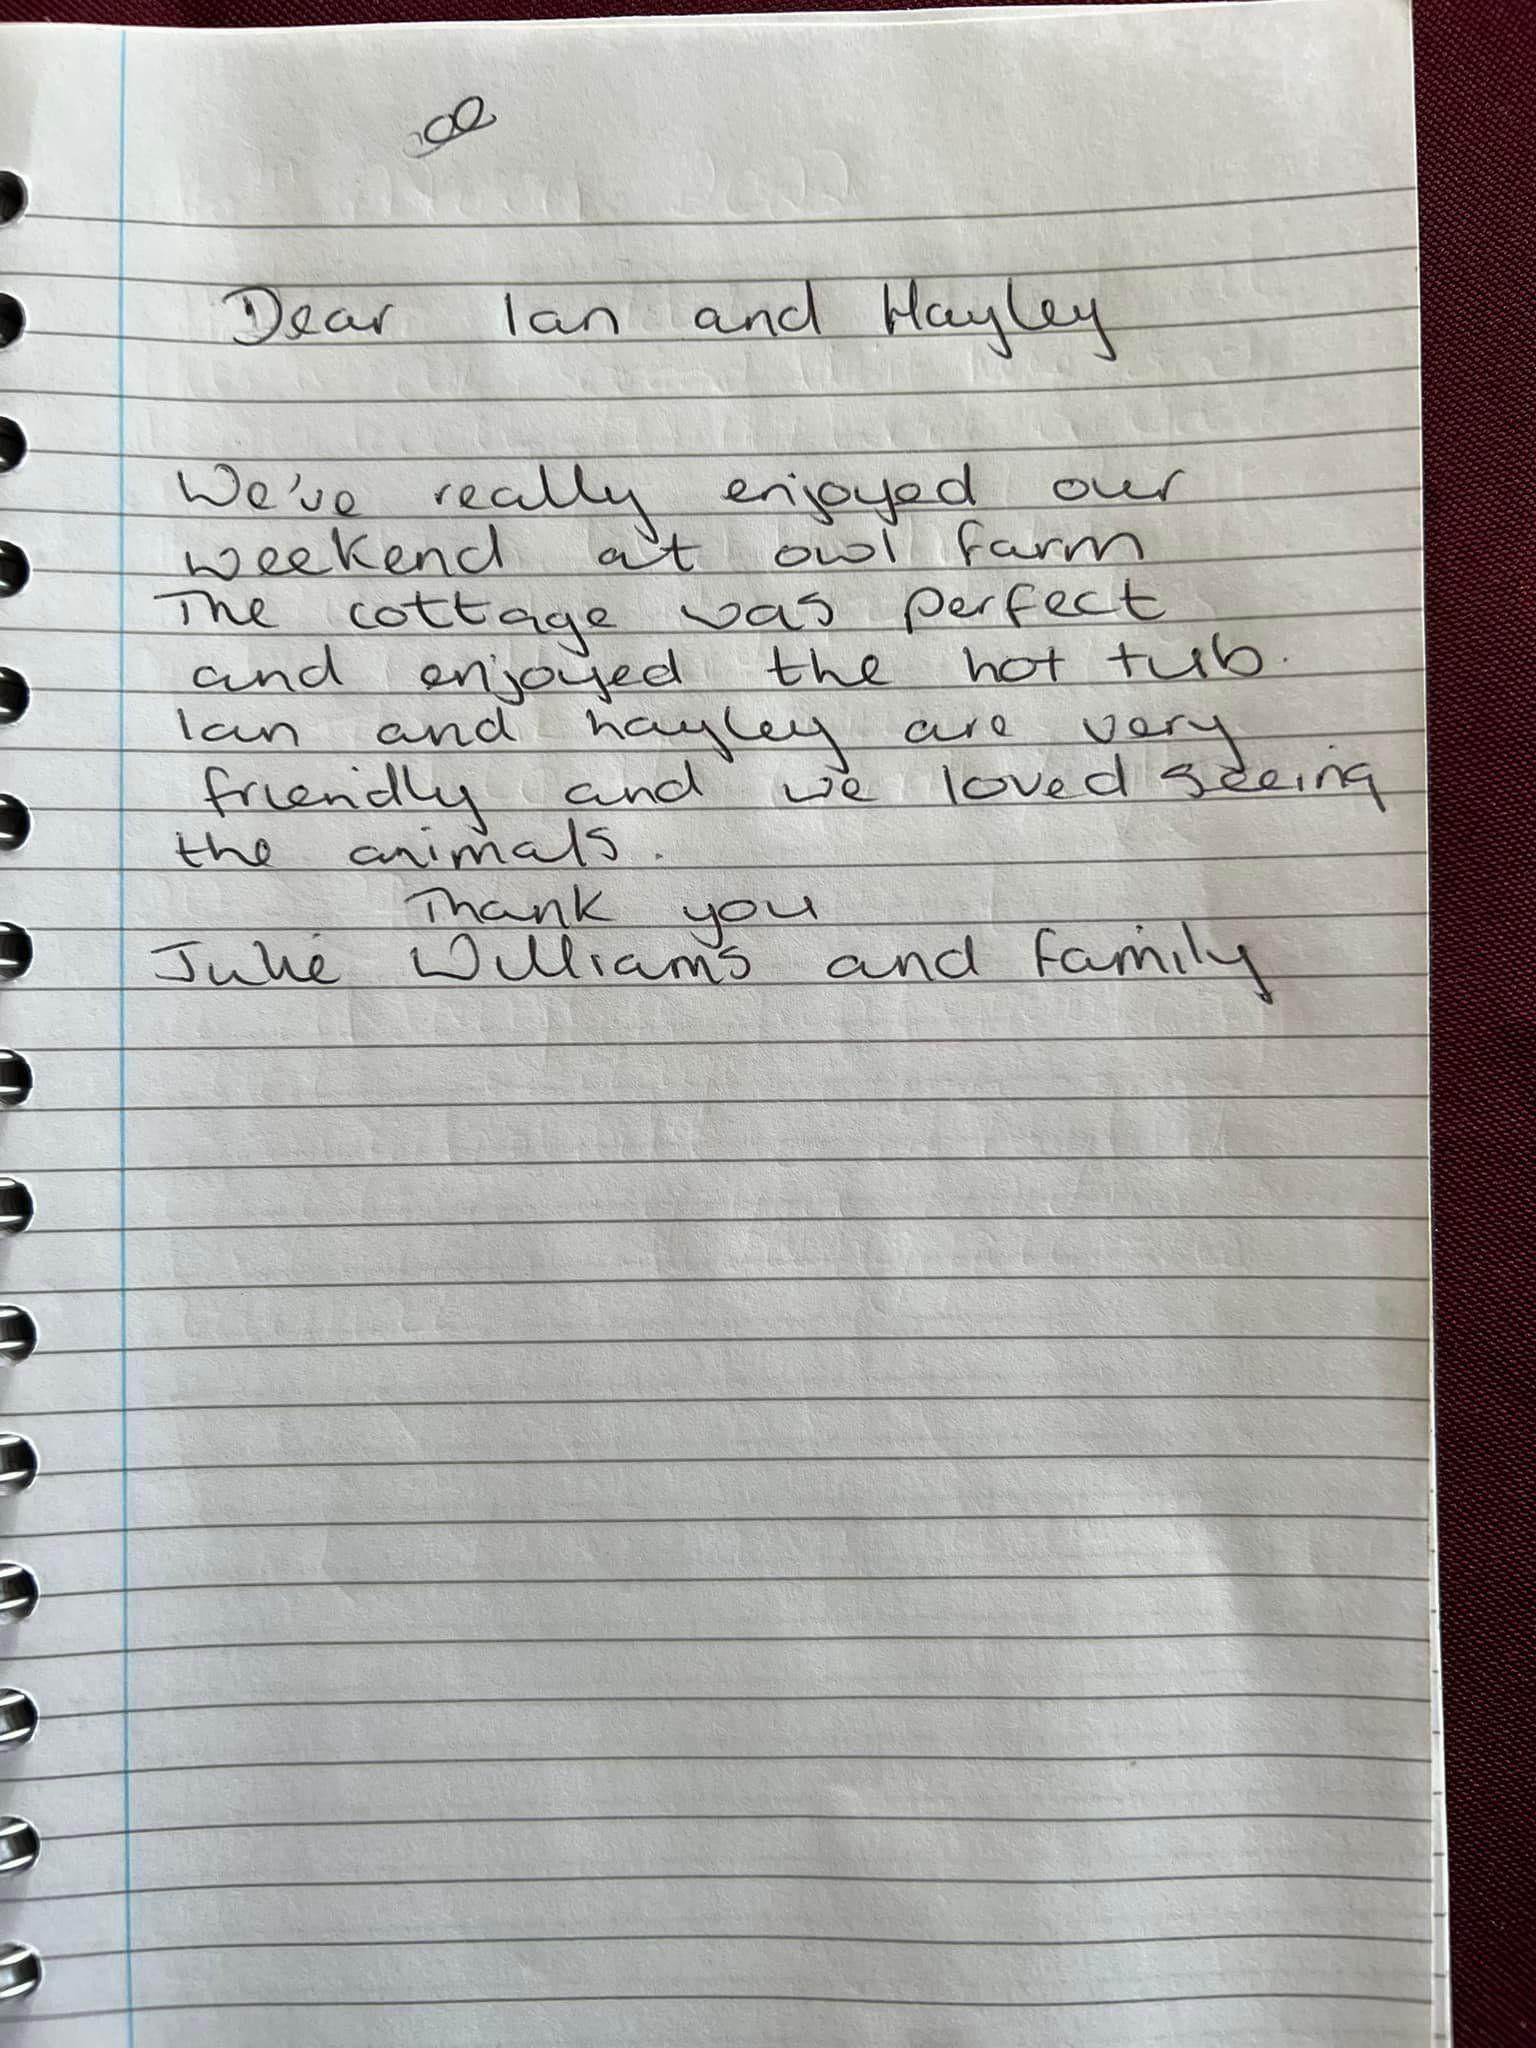 Dear Ian and Hayley
We've really enjoyed our
weekend at owl farm
The cottage was perfect
and enjoyed the hot tub.
Ian and hayley are very
friendly and we loved seeing
the animals.
Thank you
Julie Williams and family